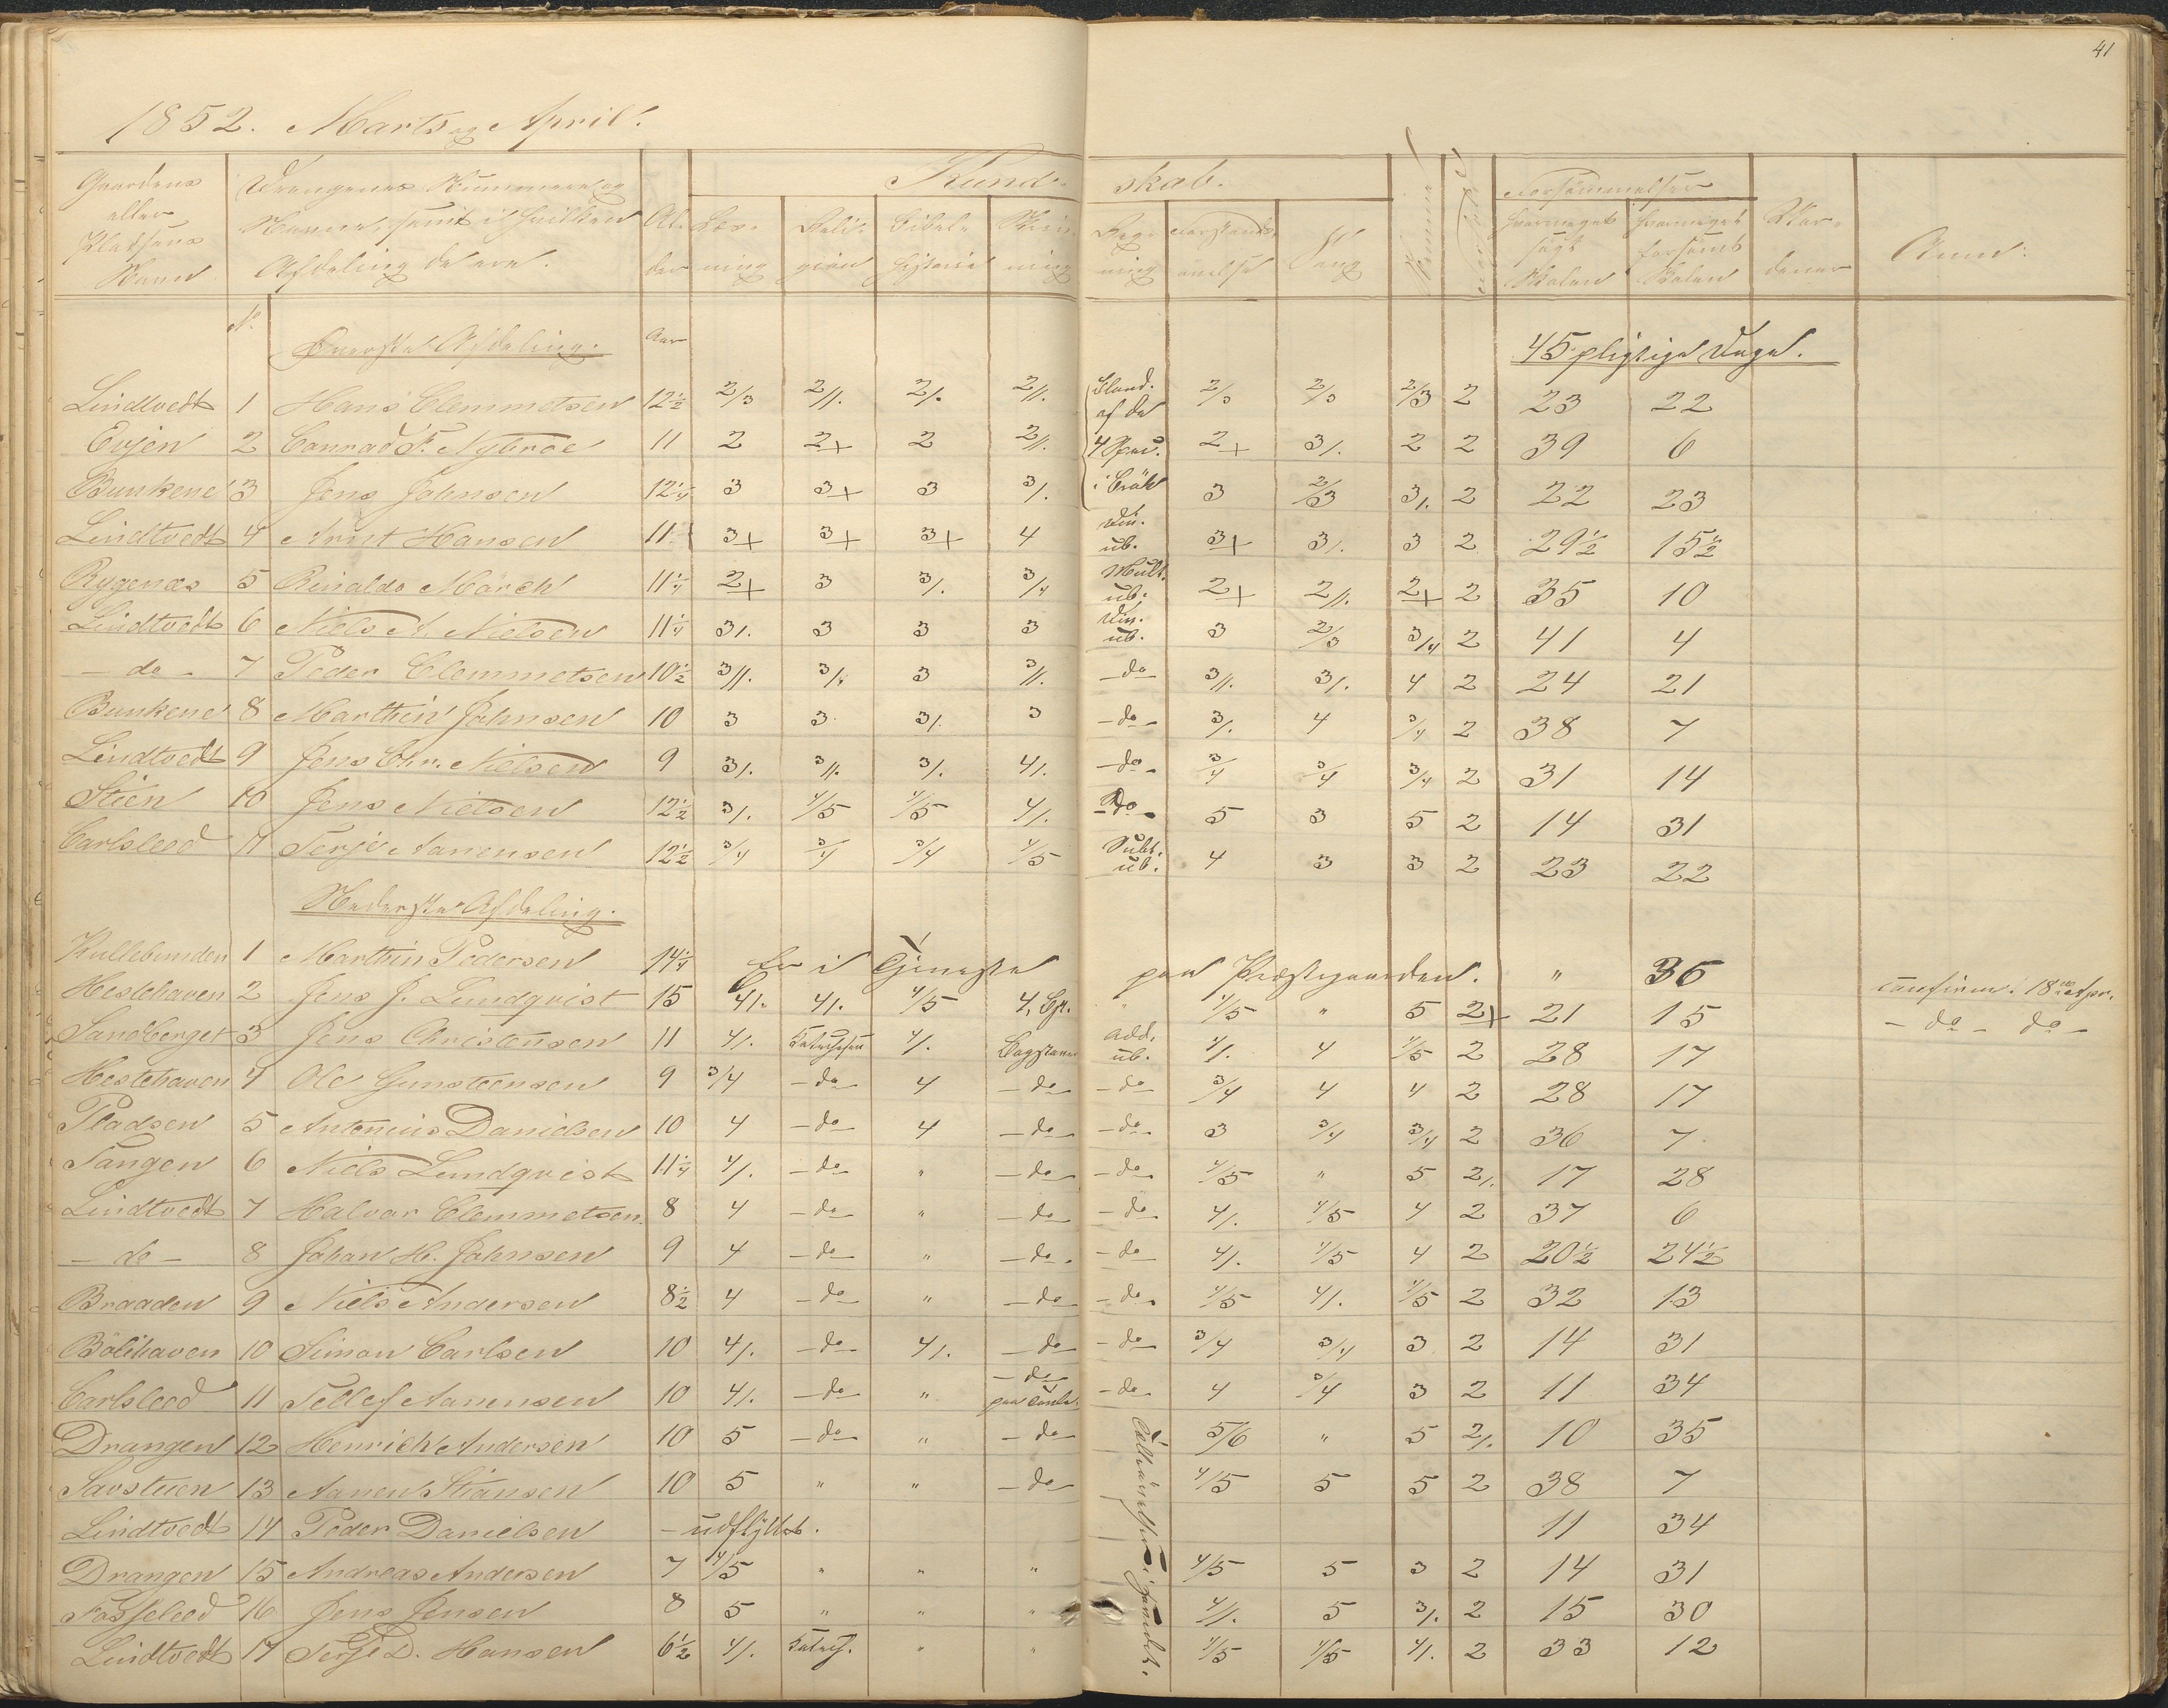 41
1852. Marts og April.
Gaardens eller Pladsens Navn Drengenes Nummere og Navne, samt i hvilken Afdeling de ere. Alder Kundskab. Læsning Religion Bibelhistorie Skrivning Regning Forstandsøvelse Sang Forsømmelser hvormeget søgt Skolen hvormeget forsømt Skolen Anm:
No Øverste Afdeling. Aar 45 pligtige Dage.
Lindtvedt 1 Hans Clemmetsen 12½ 2/3 2//. 2/. 2//. Bland. af de 2/3 2/3 2/3 2 23 22
Evjen 2 Conrad F. Nyberoe 11 2 2+ 2 2//. 4 Spec. 2+ 3/. 2 2 39 6
Bunkene 3 Jens Johnsen 12¼ 3 3+ 3 3/. i Bråk 3 2/3 3/. 2 22 23
Lindtvedt 4 Arnt Hansen 11 3+ 3+ 3+ 4 Div. ub. 3+ 3/. 3 2 29½ 15½
Rygenæs 5 Rinaldo March 11¼ 2+ 3 3/. 3/4 Mult. ub. 2+ 2//. 2+ 2 35 10
Lindtvedt 6 Niels A. Nielsen 11¼ 3/. 3 3 3 Div. ub. 3 2/3 3/4 2 41 4
- do - 7 Peder Clemmetsen 10½ 3//. 3/. 3 3//. - do - 3//. 3/. 4 2 24 21
Bunkene 8 Marthin Johnsen 10 3 3 3/. 3 - do - 3/. 4 3/4 2 38 7
Lindtvedt 9 Jens Chr. Nielsen 9 3/. 3//. 3/. 4/. - do - 3/4 3/4 3/4 2 31 14
Stien 10 Jens Nielsen 12½ 3/. 4/5 4/5 4/. - do - 5 3 5 2 14 31
Carlsleed 11 Terje Aanensen 12½ 3/4 3/4 3/4 4/5 Subt. ub. 4 3 3 2 23 22
Nederste Afdeling.
Kullebunden 1 Marthin Pedersen 14¼ Er i Tjeneste paa Præstegaarden. " 36 confirm. 18de Apr.
Hestehaven 2 Jens J. Lundqvist 15 4/. 4/. 4/5 4, " 4/5 " 5 2+ 21 15 - do - do -
Sandberget 3 Jens Christensen 11 4/. 4/. Bogstaver add. ub. 4/. 4 4/5 2 28 17
Hestehaven 4 Ole Gunsteensen 9 3/4 - do - 4 - do - - do - 3/4 4 4 2 28 17
Pladsen 5 Antonius Danielsen 10 4 - do - 4 - do - - do - 3 3/4 3/4 2 36 7
Tangen 6 Niels Lundqvist 11¼ 4/. - do - " - do - - do - 4/5 " 5 2/. 17 28
Lindtvedt 7 Halvor Clemmetsen 8 4 - do - " - do - - do - 4/. 4/5 4 2 37 6
- do - 8 Johan H. Johnsen 9 4 - do - " - do - - do - 4/. 4/5 4 2 20½ 24½
Braaden 9 Niels Andersen 8½ 4 - do - " - do - - do - 4/5 4/. 4/5 2 32 13
Bölihaven 10 Simon Carlsen 10 4/. - do - 4/. - do - - do - 3/4 3/4 3 2 14 31
Carlsleed 11 Tellef Aanensen 10 4/. - do - " - do - paa - do - 4 3/4 3 2 11 34
Drangen 12 Henrich Andersen 10 5 - do - " - do - 5/6 " 5 2/. 10 35
Savstuen 13 Aanen Stiansen 10 5 " " - do - 4/5 5 5 2 38 7
Lindtvedt 14 Peder Danielsen - udflyttet. 11 34
Drangen 15 Andreas Andersen 7 4/5 " " " 4/5 5 3 2 14 31
Fosseleed 16 Jens Jensen 8 5 " " " 4/. 5 3/. 2 15 30
Lindtvedt 17 Terje D. Hansen 6½ 4/. " " 4/5 4/5 4/. 2 33 12